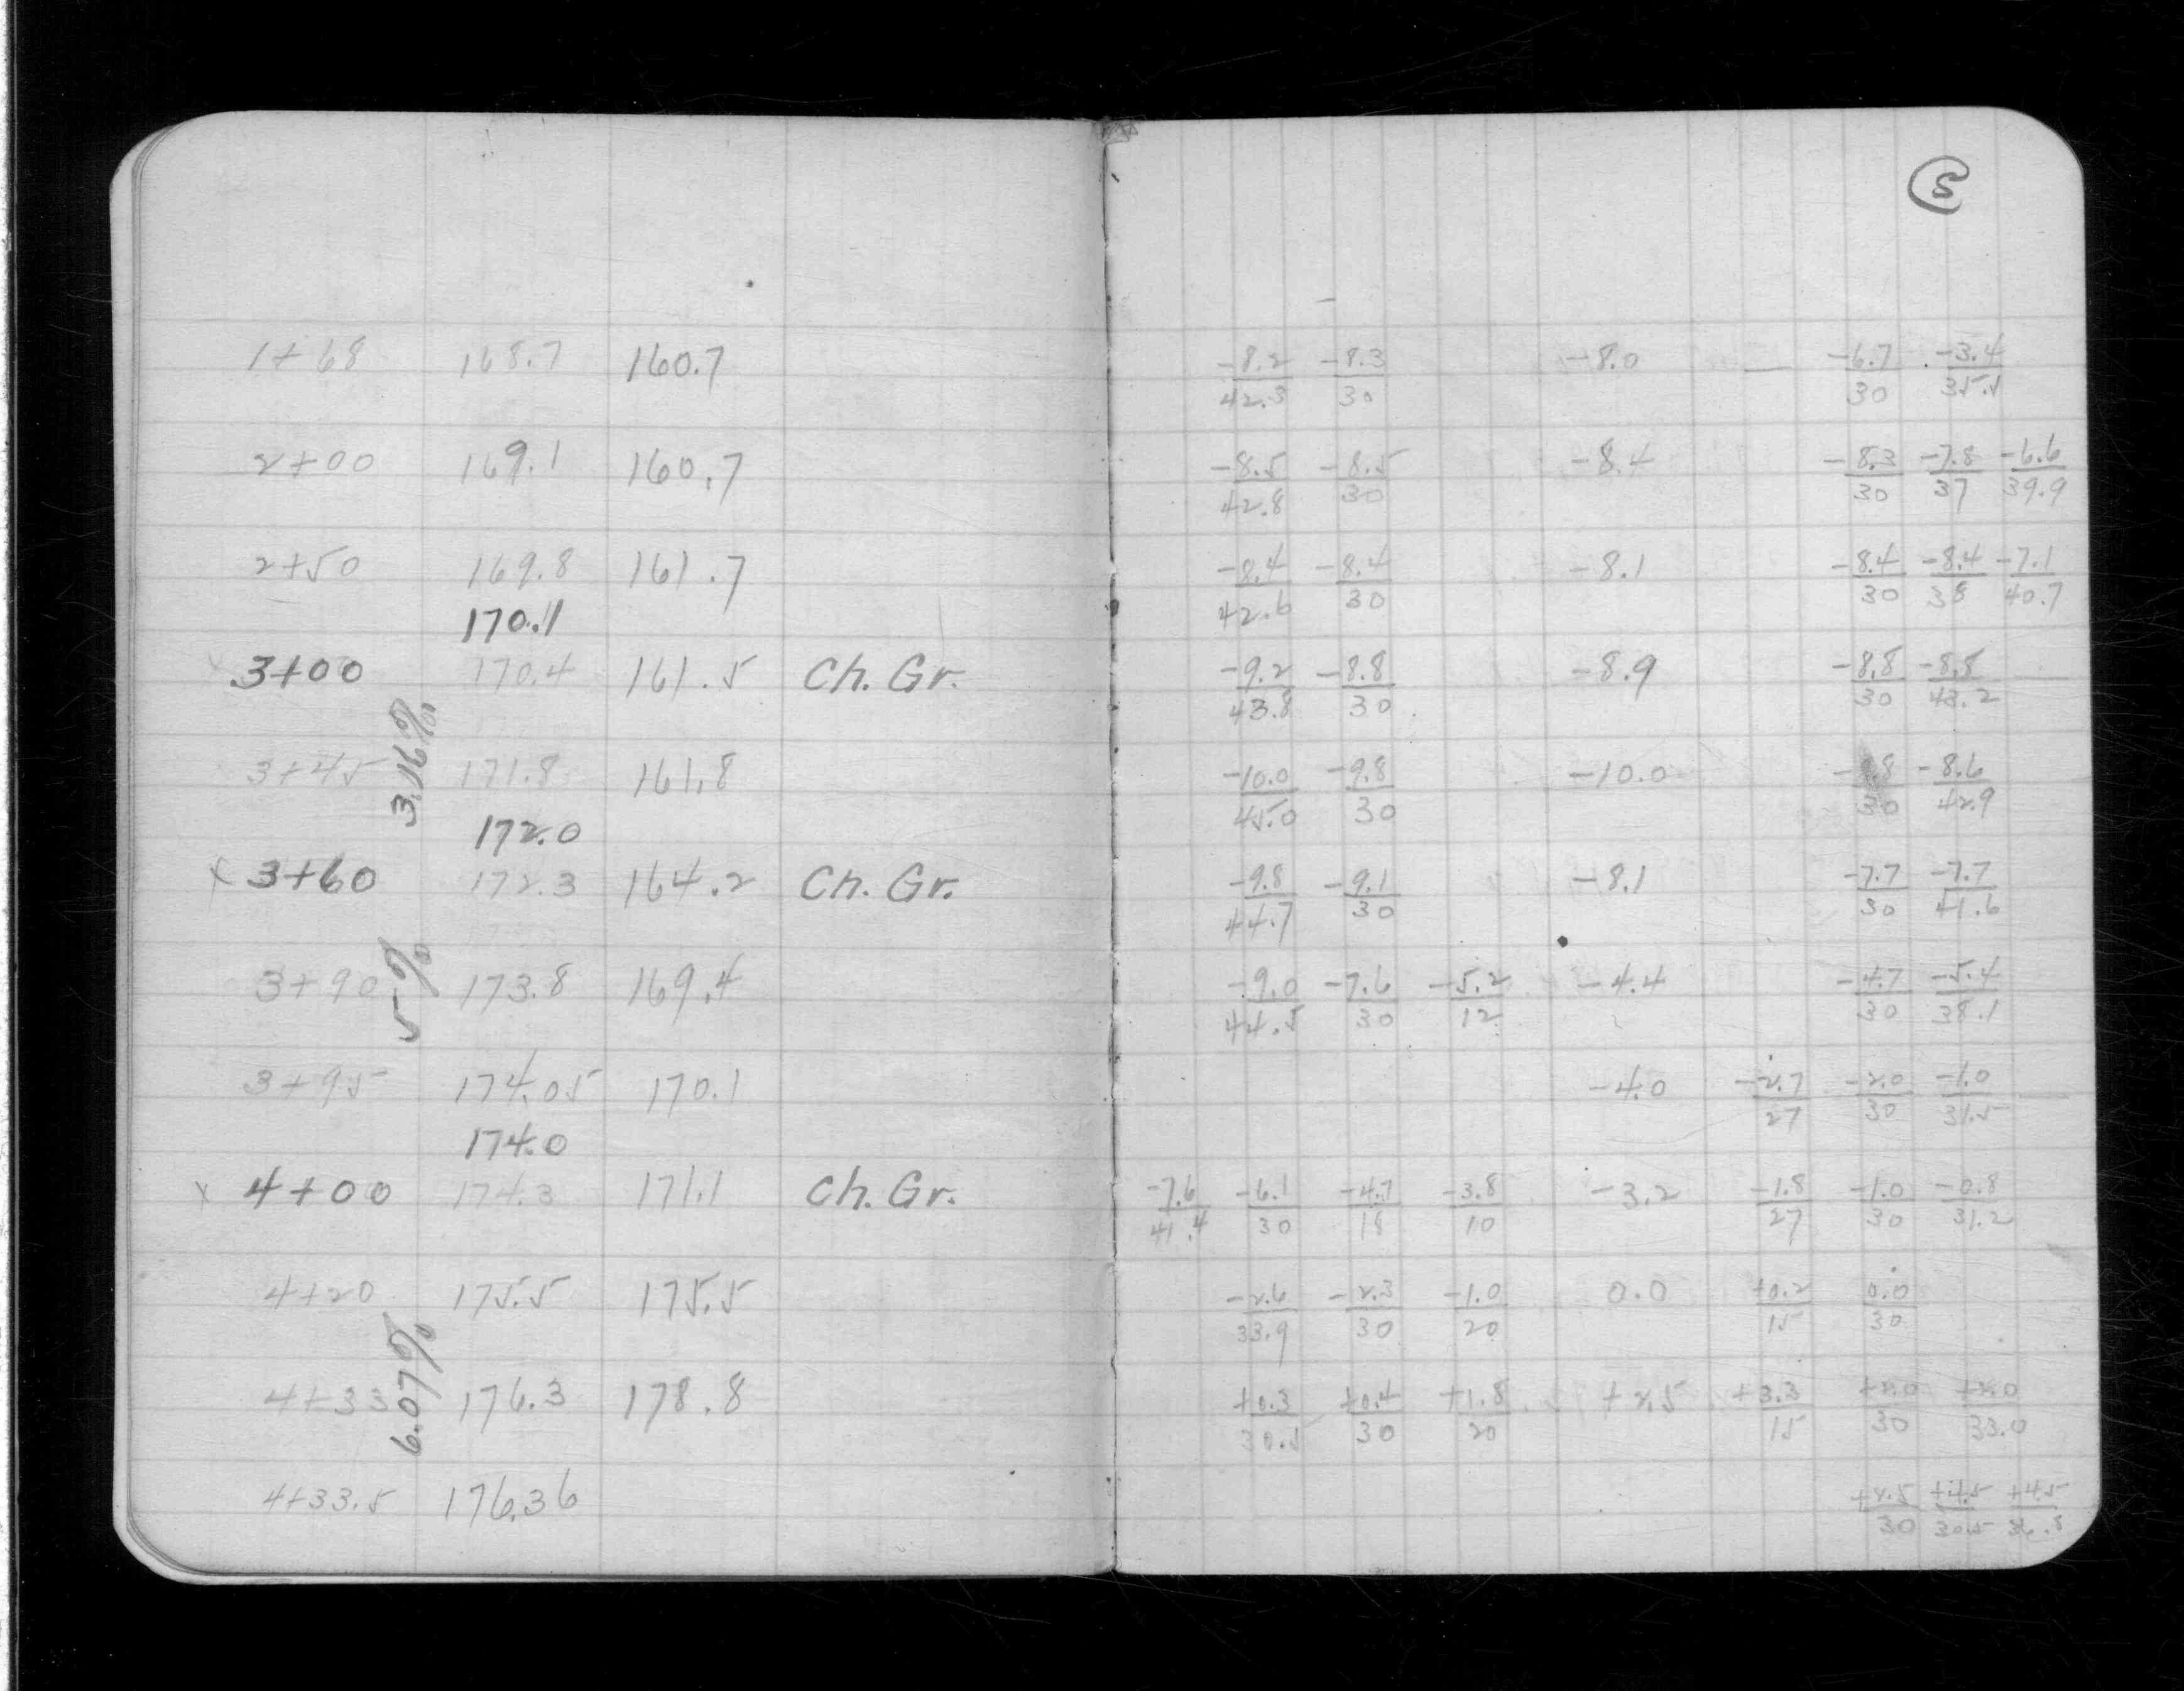 5
1+68 168.7 160.7 -8.2/42.3 -8.3/30 -8.0 — -6.7/30 -3.4/35.1
2+00 169.1 160.7 -8.5/42.8 -8.5/30 -8.4 -8.3/30 -7.8/37 -6.6/39.9
2+50 169.8 161.7 -8.4/42.6 -8.4/30 -8.1 -8.4/30 -8.4/38 -7.1/40.7
170.1
3+00 170.4 161.5 Ch. Gr. -9.2/43.8 -8.8/30 -8.9 -8.8/30 -8.8/43.2
3.16%
3+45 171.8 161.8 -10.0/45.0 -9.8/30 -10.0 30 -8.6/42.9
172.0
x 3+60 172.3 164.2 Ch. Gr. -9.8/44.7 -9.1/30 -8.1 -7.7/30 -7.7/41.6
5%
3+90 173.8 169.4 -9.0/44.5 -7.6/30 -5.2/12 -4.4 -4.7/30 -5.4/38.1
3+95 174.05 170.1 -4.0 -2.7/27 -2.0/30 -1.0/31.5
174.0
x 4+00 174.3 171.1 Ch. Gr. -7.6/41.4 -6.1/30 -4.7/18 -3.8/10 -3.2 -1.8/27 -1.0/30 -0.8/31.2
4+20 175.5 175.5 -2.6/33.9 -2.3/30 -1.0/20 0.0 +0.2/15 0.0/30
6.07%
4+33 176.3 178.8 +0.3/30.5 +0.4/30 +1.8/20 +2.5 +3.3/15 +2.0/30 +2.0/33.0
4+33.5 176.36 +2.5/30 +4.5/30.5 +4.5/36.8